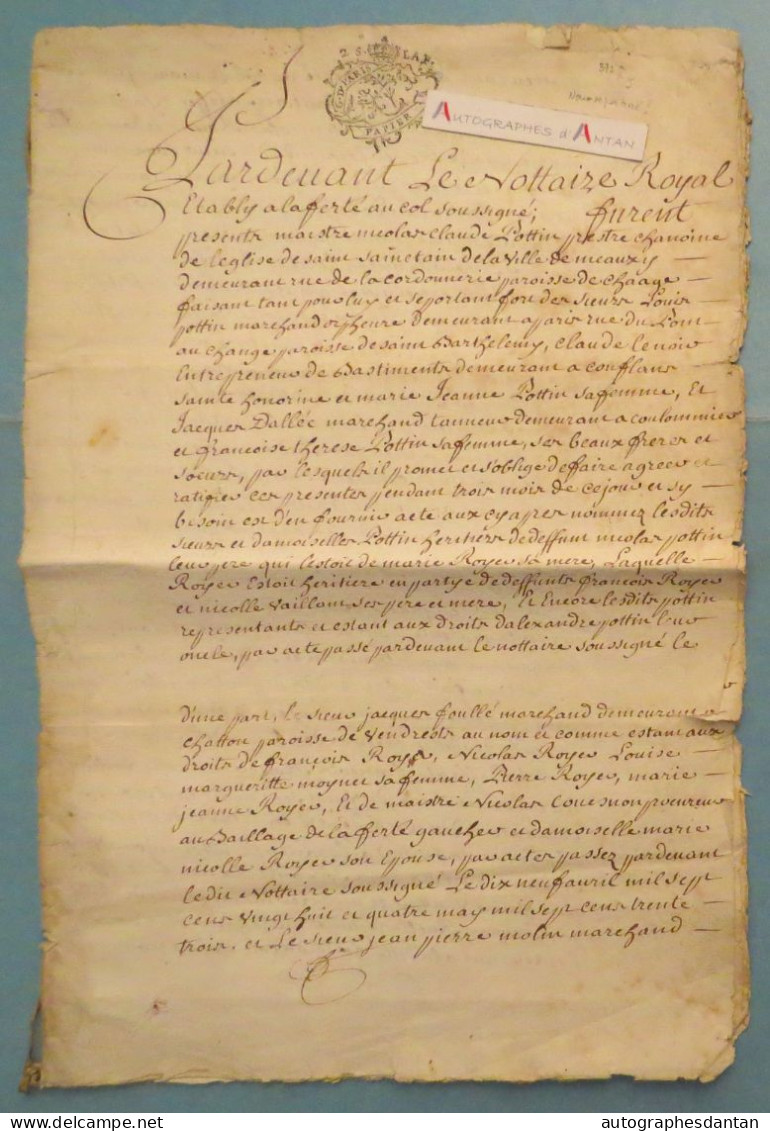 2 S. LA F.
G. DE PARIS
PAPIER
AUTOGRAPHES d'ANTAN
Pardeuant Le Nottaire Royal
Etably a laferté au col soussigné; furent
presents maistre nicolas claude Pottin prestre chanoine
de leglise de saint sainctain de la Ville de meaux y
demeurant rue de la cordonnerie paroisse de chaage
faisant tant pour luy et se portant fort des sieurs Louis
pottin marchand orpheure demeurant a paris rue du Pont
au change paroisse de saint Barthelemy, claude lenoir
Entrepreneur de Bastiments demeurant a conflans
sainte honorine et marie Jeanne Pottin safemme, Et
Jacques Dallée marchand tanneur demeurant a coulommiers
et francoise therese Pottin safemme, ses beaux freres et
soeurs, par lesquels il promet et s'oblige de ffaire agreer et
ratifier ces presentes pendant trois mois de cejour et sy
besoin est d'en fournir acte aux cy apres nommez lesdits
sieurs et damoiselles Pottin heritiers de deffunt nicolas pottin
leur pere qui lestoit de marie Royer sa mere, Laquelle
Royer Estoit heritiere en partye de deffunts francois Royer
et nicolle Vaillant ses pere et mere, Et Encore lesdits pottin
representants et estant aux droits dalexandre pottin leur
oncle, par acte passé pardeuant le nottaire soussigné le
d'une part, le sieur jacques foullé marchand demeurant a
chatton paroisse de Vendrests au nom et comme estant aux
droits de francois Royer, Nicolas Royer Louise
margueritte moynet safemme, Pierre Royer, marie
jeanne Royer, Et de maistre Nicolas Couesnon procureur
au Baillage de laferté gaucher et damoiselle marie
nicolle Royer son Epouse, par actes passez pardeuant
le dit Nottaire soussigné Le dix neuf auril mil sept
cens vingt huit et quatre may mil sept cens trente
trois. et Le sieur jean pierre molin marchand
autographesdantan